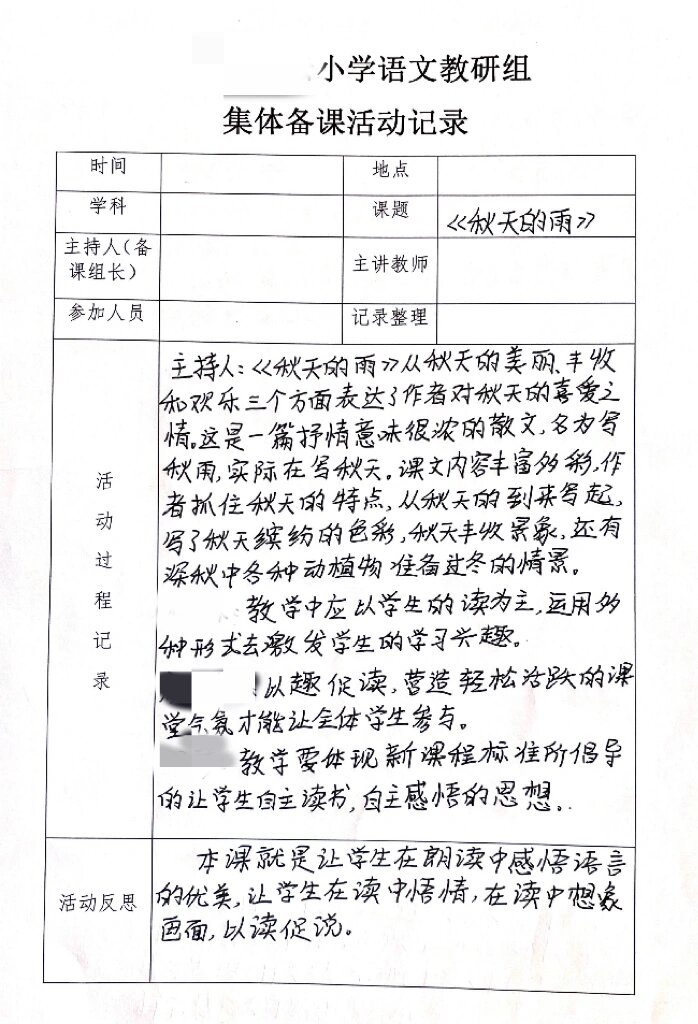 小学语文教研组
集体备课活动记录
时间 地点
学科 课题 《秋天的雨》
主持人（备课组长） 主讲教师
参加人员 记录整理
活动过程记录
主持人：《秋天的雨》从秋天的美丽、丰收
和欢乐三个方面表达了作者对秋天的喜爱之
情。这是一篇抒情意味很浓的散文，名为写
秋雨，实际在写秋天。课文内容丰富多彩，作
者抓住秋天的特点，从秋天的到来写起，
写了秋天缤纷的色彩，秋天丰收景象，还有
深秋中各种动植物准备过冬的情景。
教学中应以学生的读为主，运用多
种形式去激发学生的学习兴趣。
以趣促读，营造轻松活跃的课
堂气氛才能让全体学生参与。
教学要体现新课程标准所倡导
的让学生自主读书，自主感悟的思想。
活动反思
本课就是让学生在朗读中感悟语言
的优美，让学生在读中悟情，在读中想象
画面，以读促说。